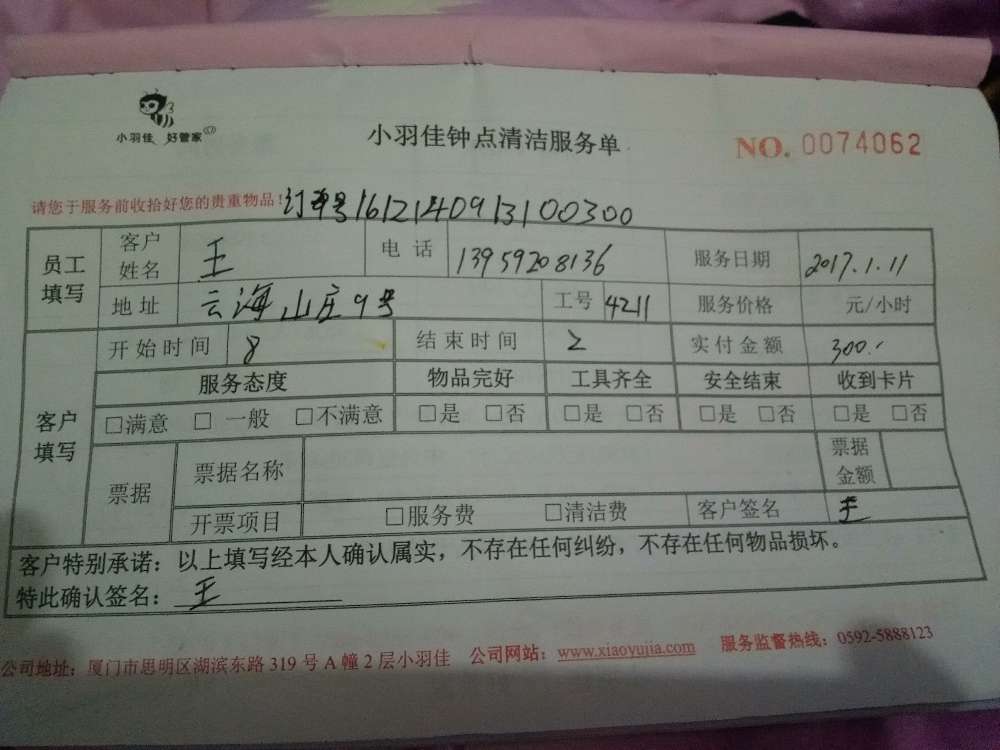 小羽佳 好管家
小羽佳钟点清洁服务单
NO. 0074062
请您于服务前收拾好您的贵重物品! 订单号1612140913100300
员工填写 客户姓名 王 电话 13959208136 服务日期 2017.1.11
地址 云海山庄9号 工号 4211 服务价格 元/小时
客户填写 开始时间 8 结束时间 2 实付金额 300.
服务态度 物品完好 工具齐全 安全结束 收到卡片
□满意 □一般 □不满意 □是 □否 □是 □否 □是 □否 □是 □否
票据 票据名称 票据金额
开票项目 □服务费 □清洁费 客户签名 王
客户特别承诺：以上填写经本人确认属实，不存在任何纠纷，不存在任何物品损坏。
特此确认签名：王
公司地址：厦门市思明区湖滨东路319号A幢2层小羽佳 公司网站：www.xiaoyujia.com 服务监督热线：0592-5888123